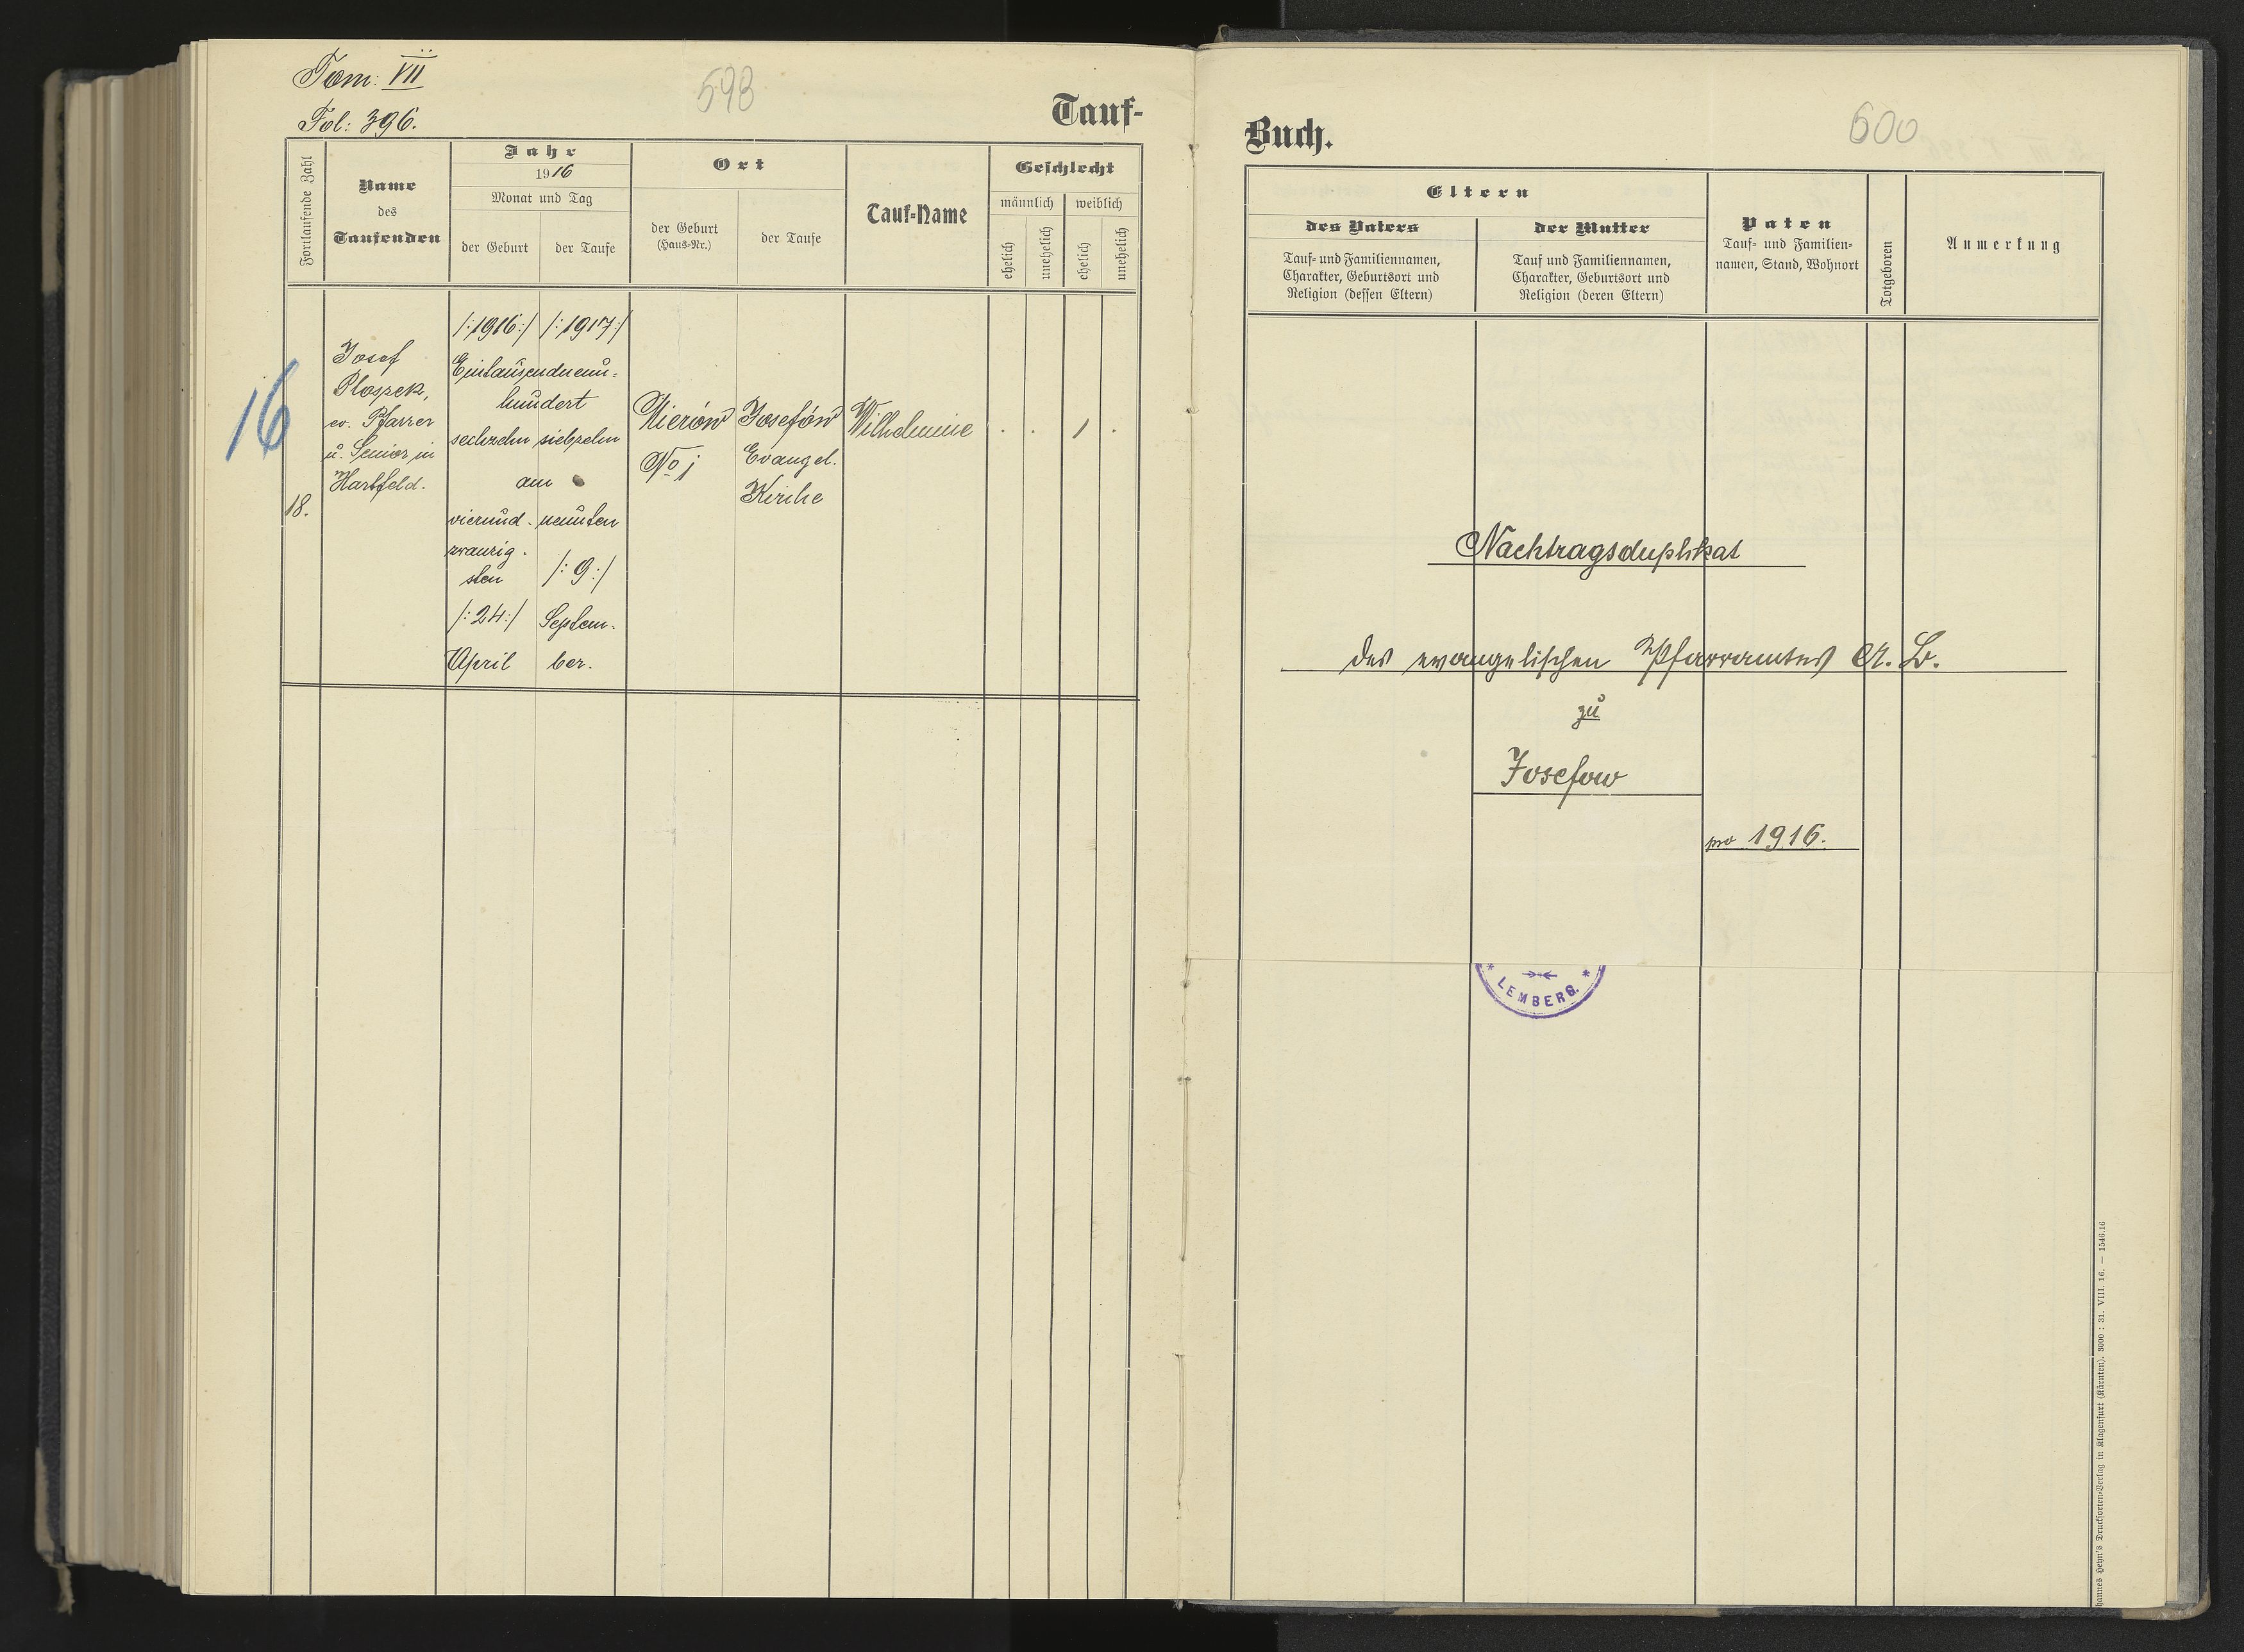 Tom: VII
Fol: 396.
598
Tauf-
Fortlaufende Zahl
Name
des
Taufenden
Jahr
1916
Monat und Tag
der Geburt
der Taufe
Ort
der Geburt
(Haus-Nr.)
der Taufe
Tauf-Name
Geschlecht
männlich
weiblich
ehelich
unehelich
ehelich
unehelich
16
18.
Josef
Ploszek,
ev. Pfarrer
u. Senior in
Hartfeld.
/:1916:/ /:1917:/
Eintausendneun=
hundert
sechzehn siebzehn
am
vierund- neunten
zwanzig-
sten /:9:/
/:24:/ Septem-
April ber.
Nierów
No 1
Josefów
Evangel.
Kirche
Wilhelmine
. . 1 .
Buch.
600
Eltern
des Vaters
Tauf- und Familiennamen,
Charakter, Geburtsort und
Religion (dessen Eltern)
der Mutter
Tauf und Familiennamen,
Charakter, Geburtsort und
Religion (deren Eltern)
Paten
Tauf- und Familien-
namen, Stand, Wohnort
Totgeboren
Anmerkung
Nachtragsduplikat
des evangelischen Pfarramtes A. B.
zu
Josefow
pro 1916.
* LEMBERG. *
hannes Heyn's Drucksorten-Verlag in Klagenfurt (Kärnten). 3000 : 31. VIII. 16. — 1546.16